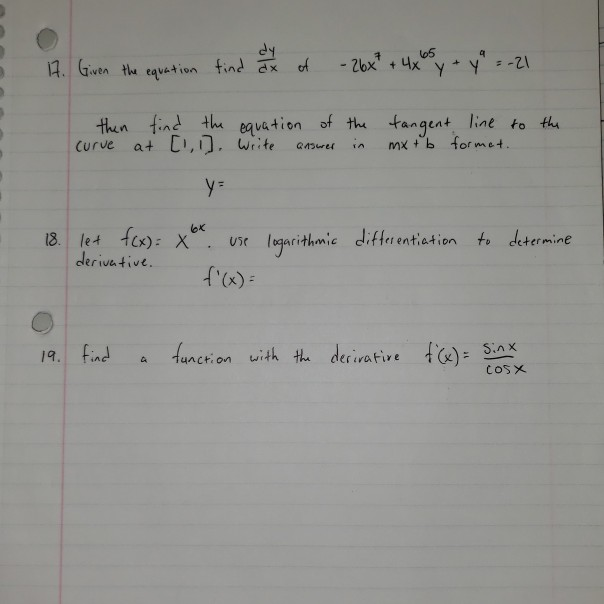 17. Given the equation find dy/dx of -26x⁷ + 4x⁶⁵y + y⁹ = -21
then find the equation of the tangent line to the
curve at [1,1]. Write answer in mx + b format.
y=
18. let f(x) = x⁶ˣ. use logarithmic differentiation to determine
derivative.
f'(x) =
19. find a function with the derivative f'(x) = sinx/cosx